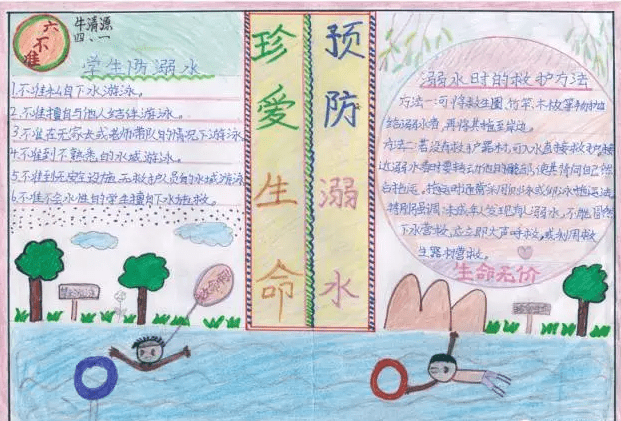 六不准
牛清源
四、一
学生防溺水
1.不准私自下水游泳。
2.不准擅自与他人结伴游泳。
3.不准在无家长或老师带队的情况下游泳
4.不准到不熟悉的水域游泳。
5.不准到无安全设施、无救护人员的水域游泳
6.不准不会水性的学生擅自下水施救。
珍爱生命
预防溺水
溺水时的救护方法
方法一:可将救生圈、竹竿、木板等物抛
给溺水者,再将其拖至岸边。
方法二:若没有救护器材,可入水直接救护。接
近溺水者时要转动他的髋部,使其背向自己然
后拖运。拖运时通常采用侧泳或仰泳拖运法
特别强调:未成年人发现有人溺水,不能冒然
下水营救,应立即大声呼救,或利用救
生器材营救。
生命无价